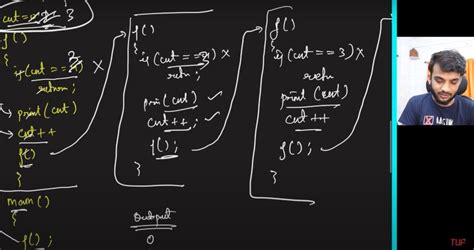 cnt = 3
f()
{
if (cnt == 3) X
return;
print (cnt)
cnt++
f()
}
main()
{
f();
f()
{
if (cnt == 3) X
retn;
prin (cnt)
cnt++ ;
f();
}
Output
0
f()
{
if (cnt == 3) X
retn
print (cnt)
cnt++
f();
}
TUF